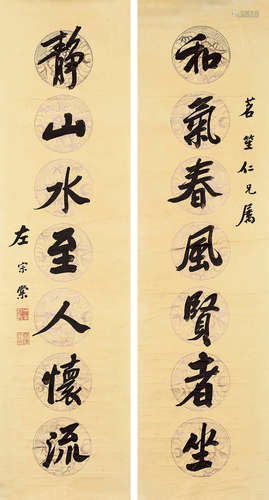 和氣春風賢者坐
茗笙仁兄屬
靜山水至人懷流
左宗棠